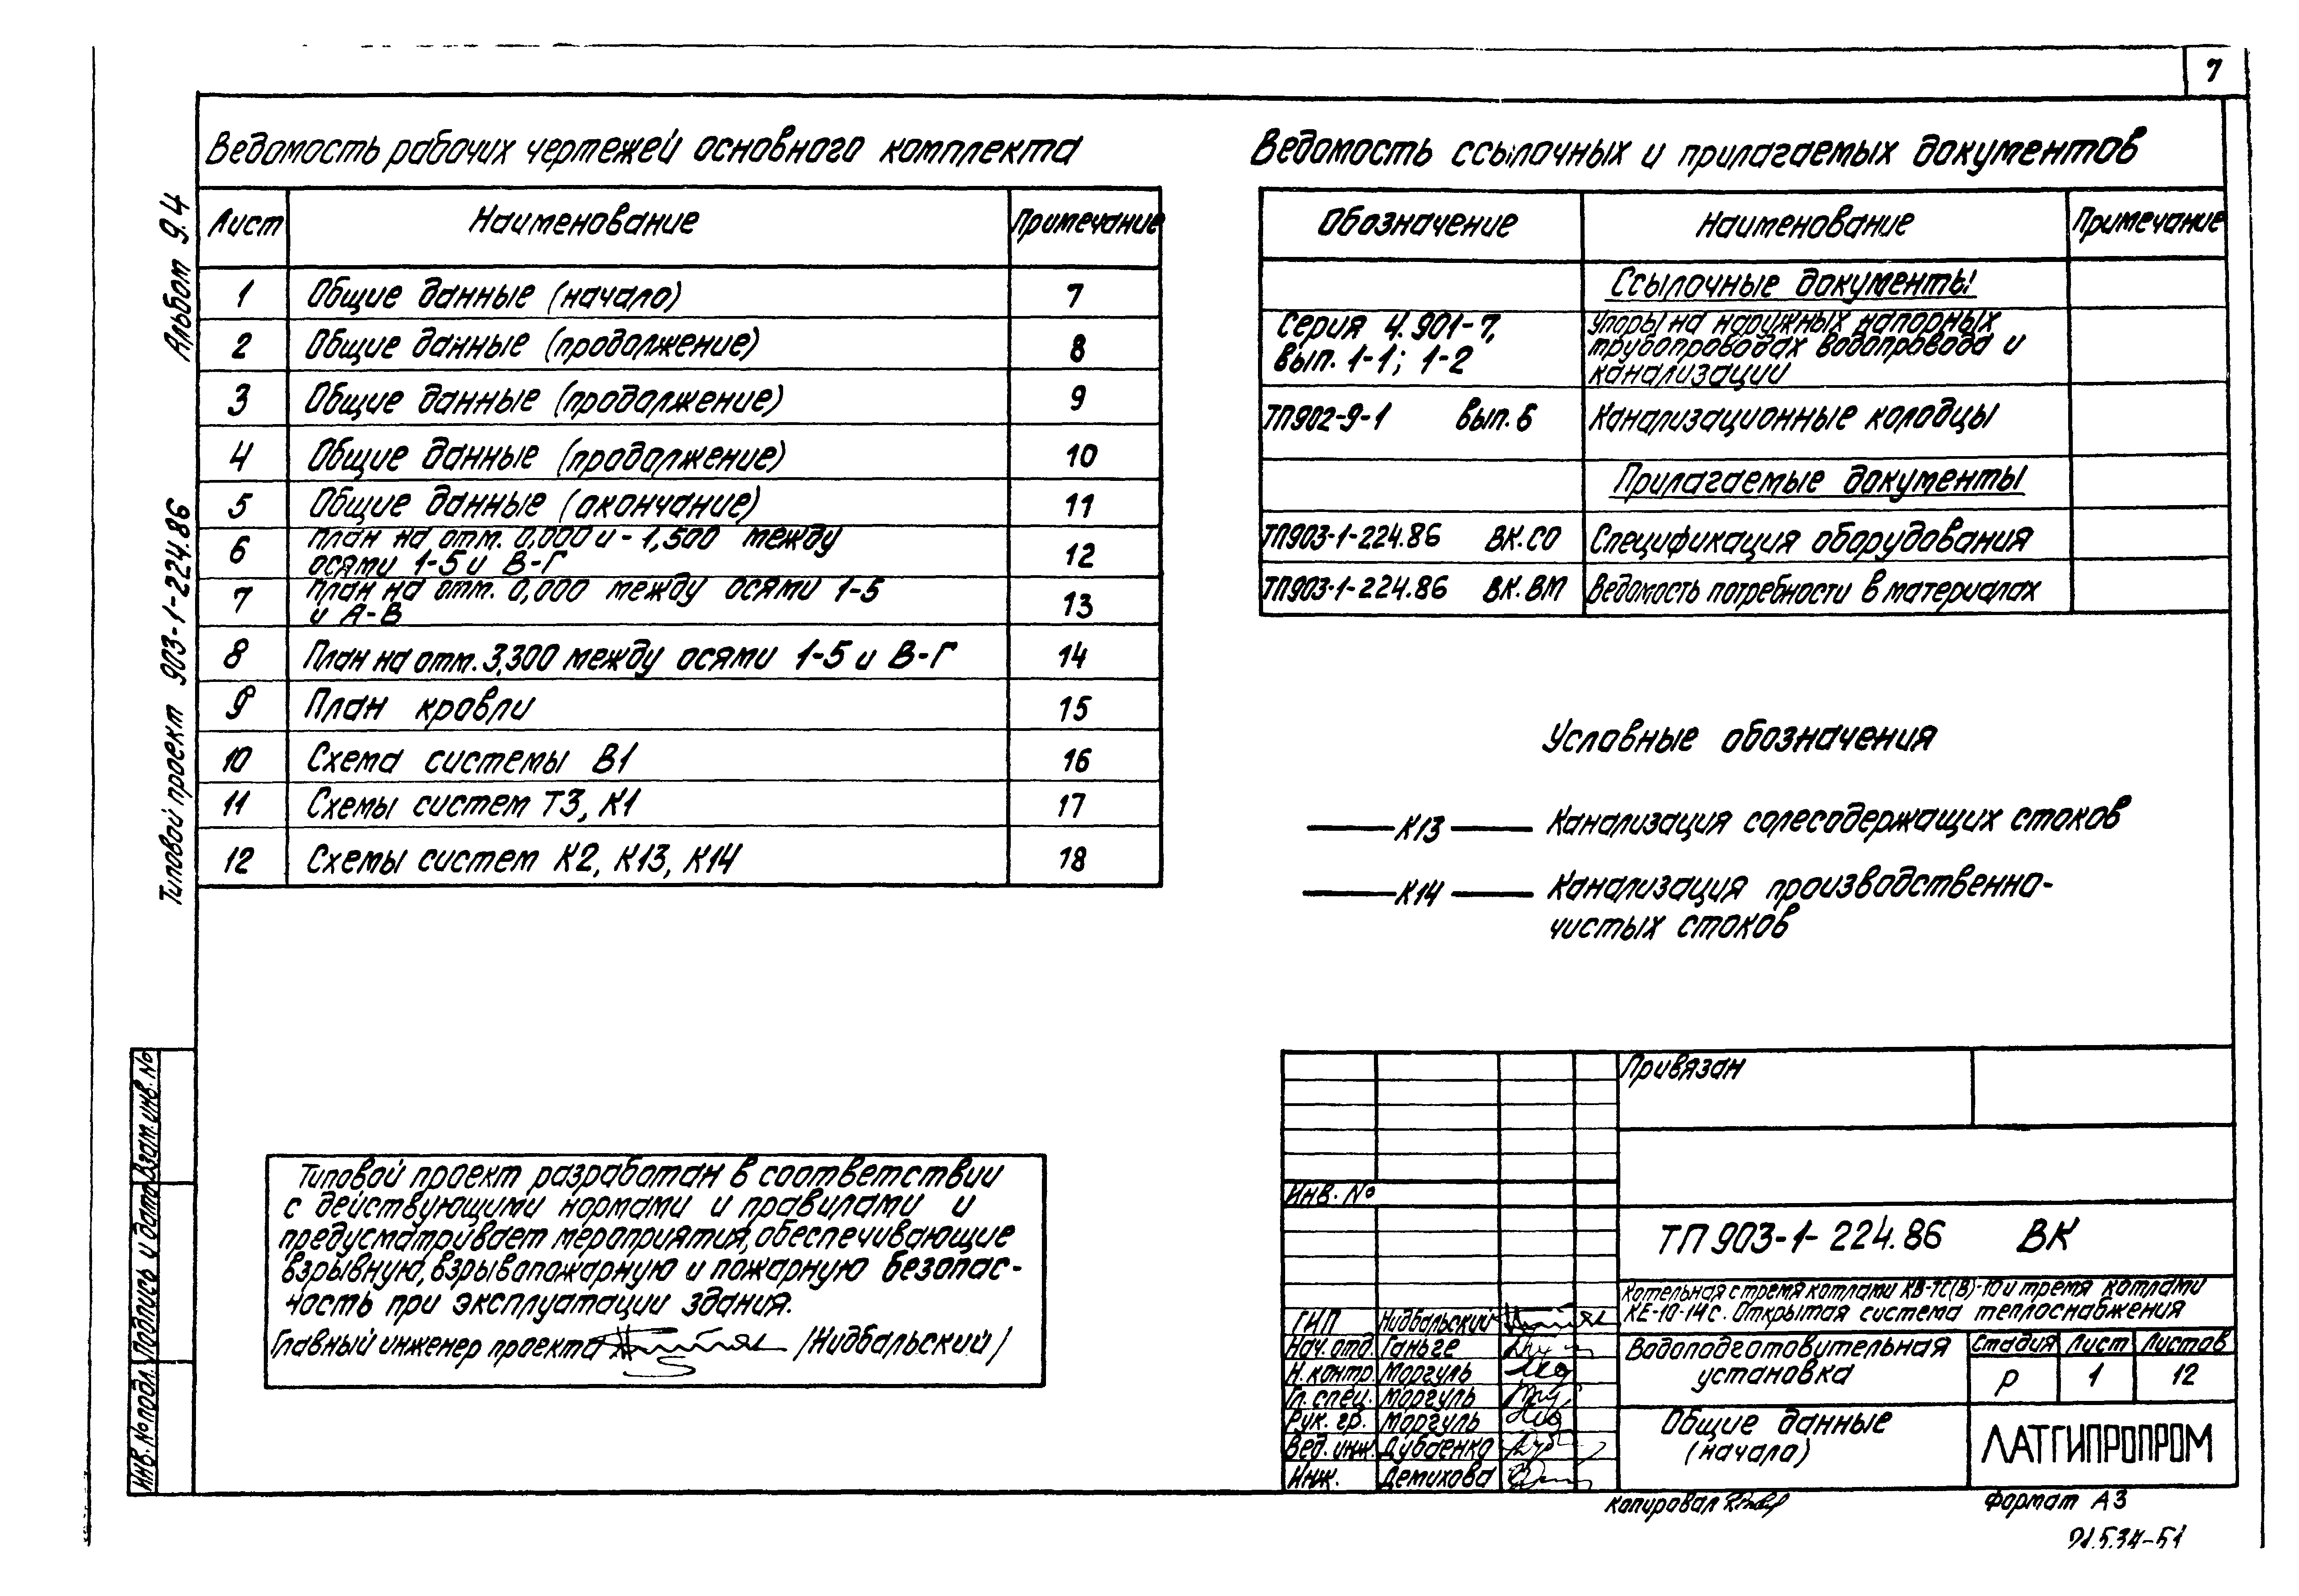 7
Альбом 9.4
Типовой проект 903-1-224.86
Ведомость рабочих чертежей основного комплекта
Лист Наименование Примечание
1 Общие данные (начало) 7
2 Общие данные (продолжение) 8
3 Общие данные (продолжение) 9
4 Общие данные (продолжение) 10
5 Общие данные (окончание) 11
6 План на отм. 0,000 и -1,500 между осями 1-5 и В-Г 12
7 План на отм. 0,000 между осями 1-5 и А-В 13
8 План на отм. 3,300 между осями 1-5 и В-Г 14
9 План кровли 15
10 Схема системы В1 16
11 Схемы систем Т3, К1 17
12 Схемы систем К2, К13, К14 18
Ведомость ссылочных и прилагаемых документов
Обозначение Наименование Примечание
Ссылочные документы
Серия 4.901-7, вып. 1-1; 1-2 Упоры на наружных напорных трубопроводах водопровода и канализации
ТП902-9-1 вып. 6 Канализационные колодцы
Прилагаемые документы
ТП903-1-224.86 ВК.СО Спецификация оборудования
ТП903-1-224.86 ВК.ВМ Ведомость потребности в материалах
Условные обозначения
К13 Канализация солесодержащих стоков
К14 Канализация производственно-
чистых стоков
Типовой проект разработан в соответствии
с действующими нормами и правилами и
предусматривает мероприятия, обеспечивающие
взрывную, взрывопожарную и пожарную безопас-
ность при эксплуатации здания.
Главный инженер проекта /Нидбальский/
Взам. инв. №
Подпись и дата
Инв. № подл.
Привязан
Инв. №
ТП 903-1-224.86 ВК
Котельная с тремя котлами КВ-ТС(В)-10 и тремя котлами
КЕ-10-14с. Открытая система теплоснабжения
ГИП Нидбальский
Нач. отд. Ганьге
Н. контр. Моргуль
Гл. спец. Моргуль
Рук. гр. Моргуль
Вед. инж. Дубаенко
Инж. Демихова
Водоподготовительная
установка
Стадия Лист Листов
Р 1 12
Общие данные
(начало)
ЛАТГИПРОПРОМ
Копировал
Формат А3